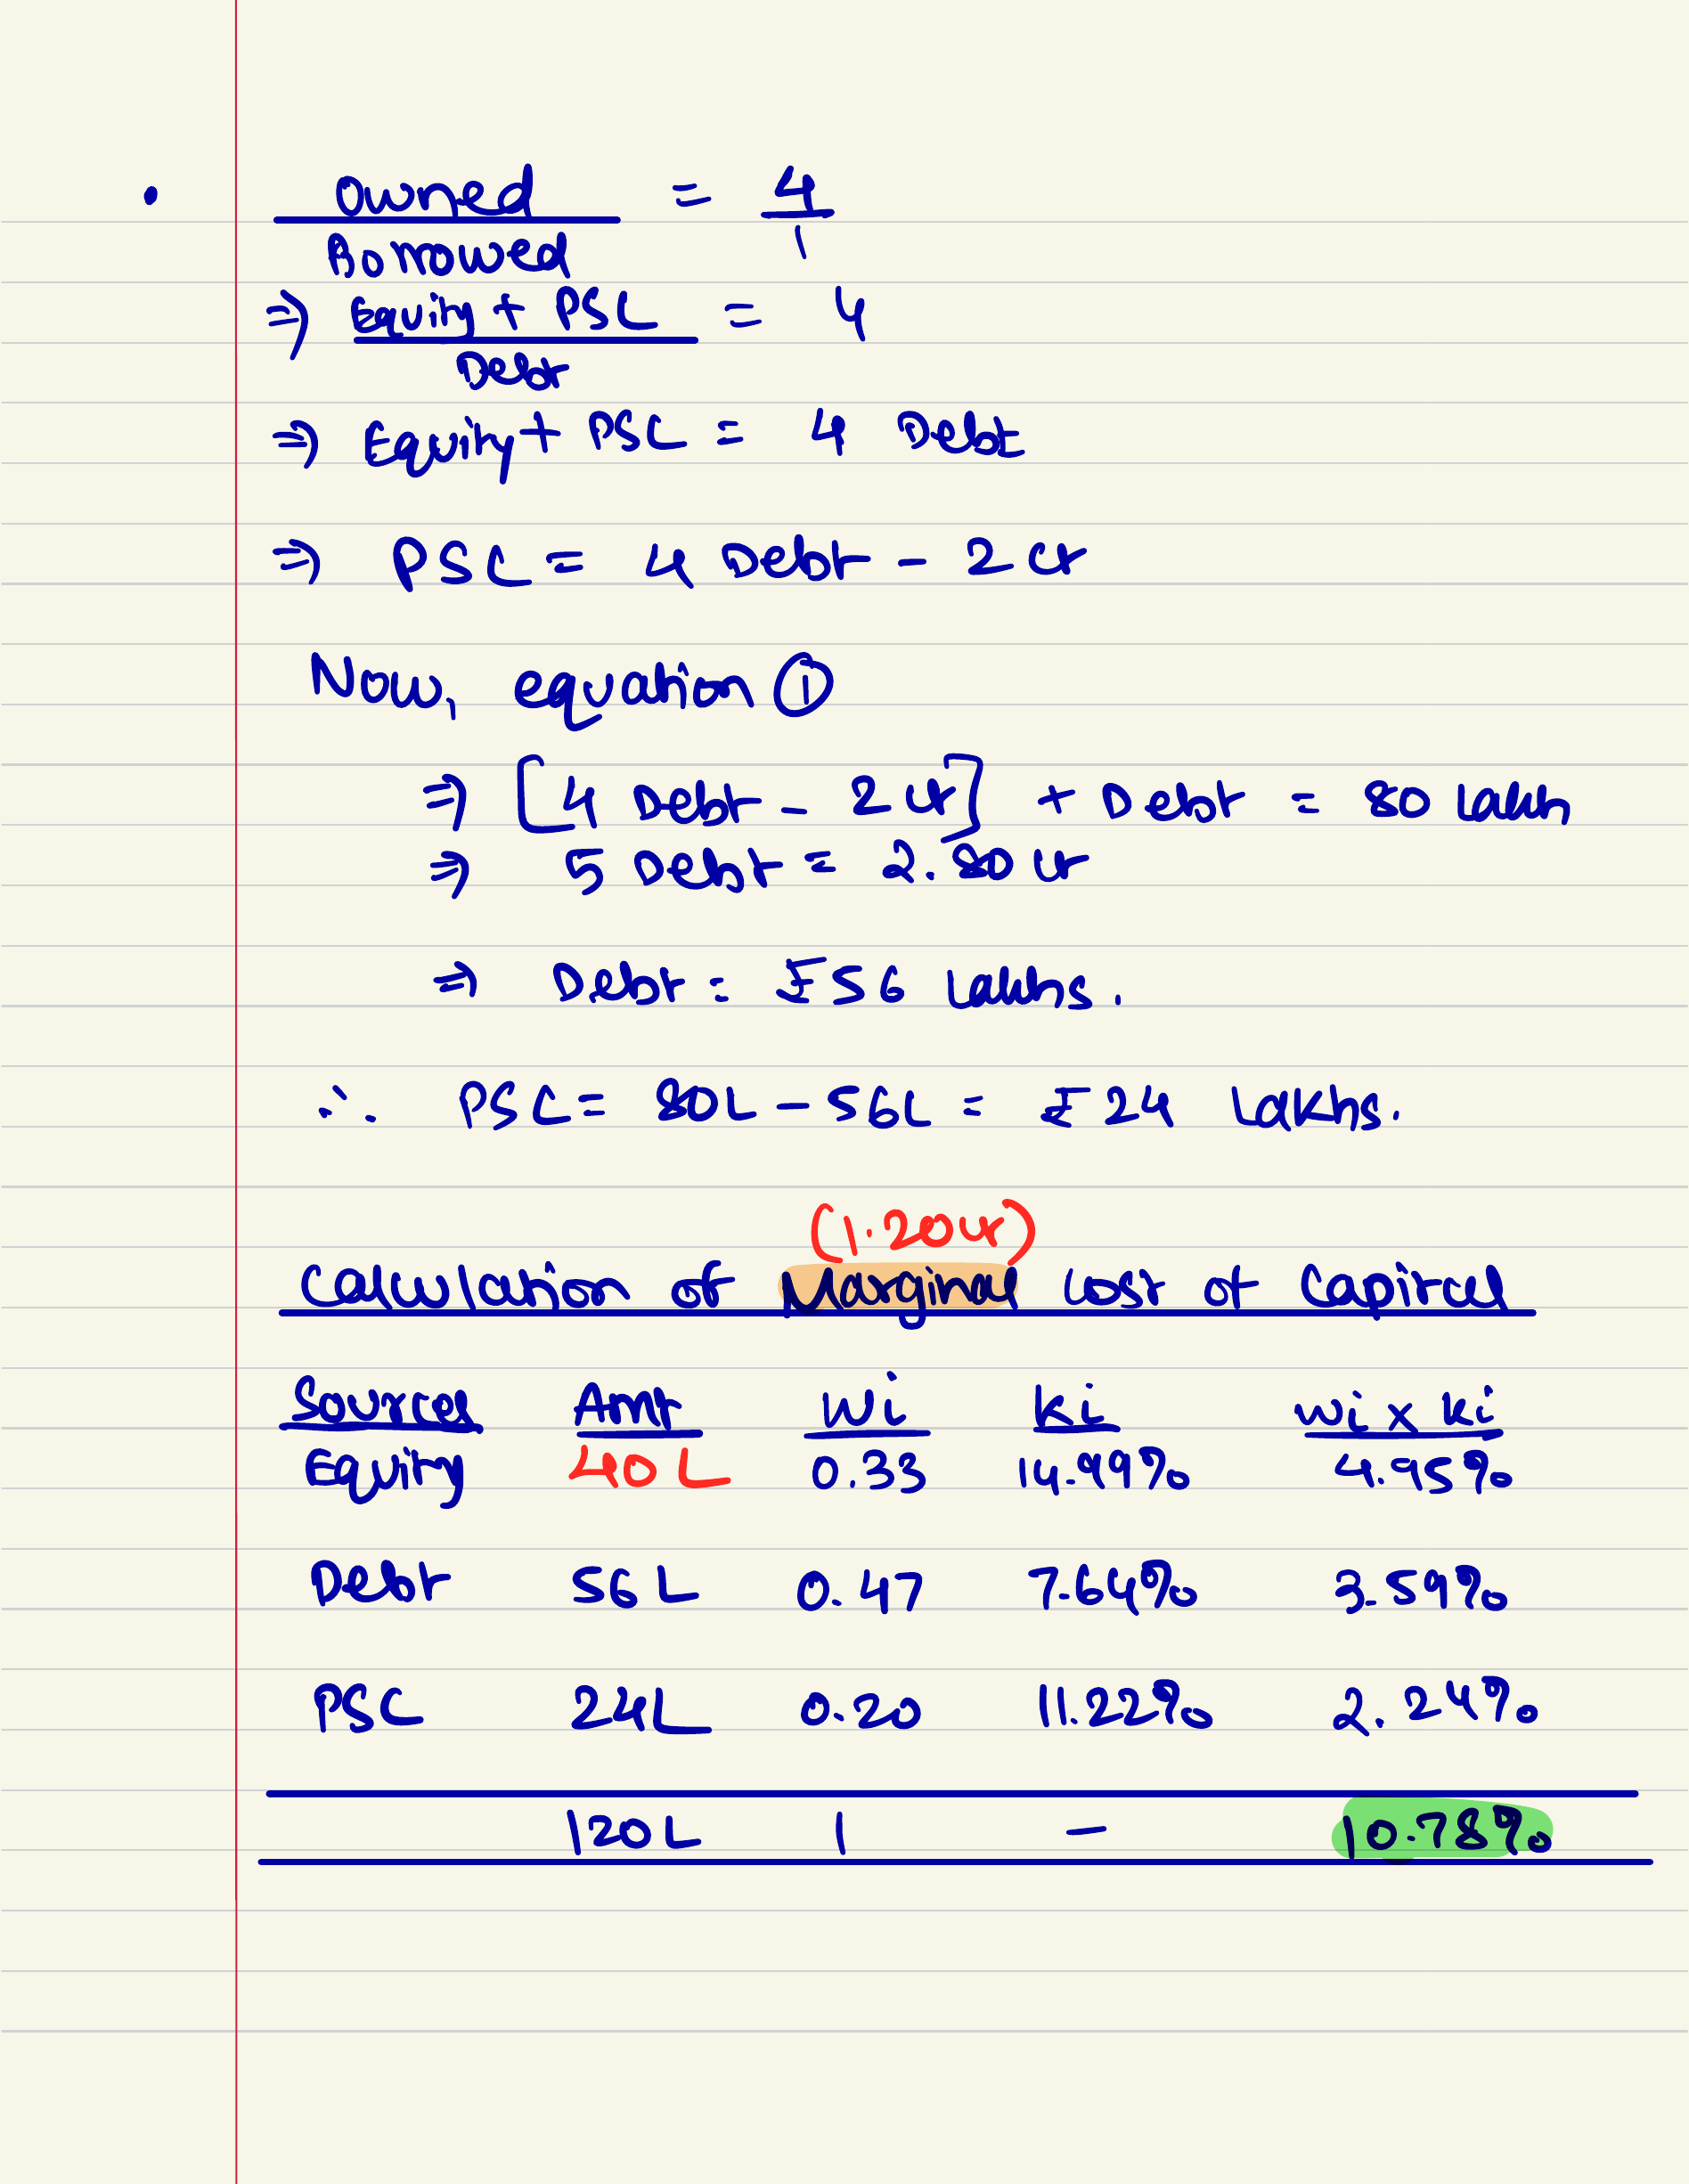 • Owned = 4
Borrowed 1
⇒ Equity + PSC = 4
Debt
⇒ Equity + PSC = 4 Debt
⇒ PSC = 4 Debt - 2 cr
Now, equation ①
⇒ [4 Debt - 2 cr] + Debt = 80 lakh
⇒ 5 Debt = 2.80 cr
⇒ Debt = ₹56 Lakhs.
∴ PSC = 80L - 56L = ₹24 Lakhs.
(1.20cr)
Calculation of Marginal cost of Capital
Sources Amt Wi Ki Wi x Ki
Equity 40 L 0.33 14.99% 4.95%
Debt 56 L 0.47 7.64% 3.59%
PSC 24L 0.20 11.22% 2.24%
120L 1 - 10.78%